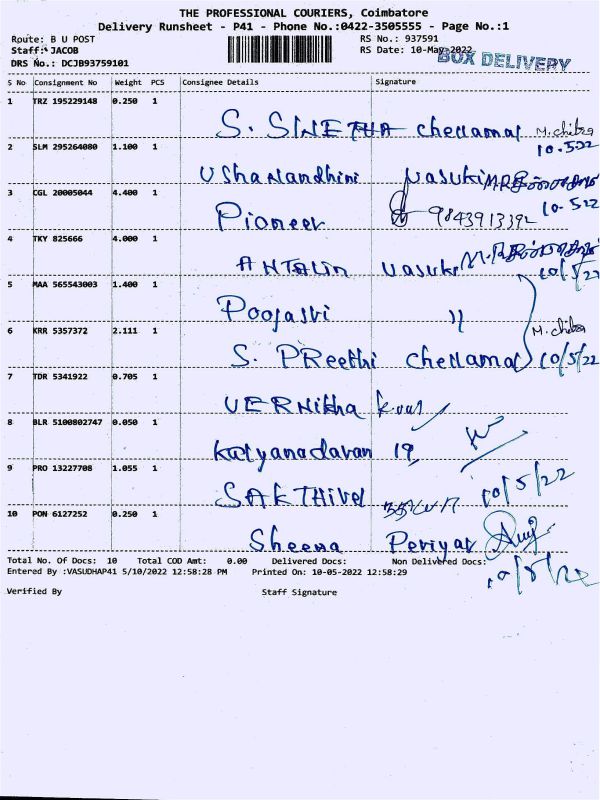 THE PROFESSIONAL COURIERS, Coimbatore
Delivery Runsheet - P41 - Phone No.:0422-3505555 - Page No.:1
Route: B U POST RS No.: 937591
Staff: JACOB RS Date: 10-May-2022
BOX DELIVERY
DRS No.: DCJB93759101
S No Consignment No Weight PCS Consignee Details Signature
1 TRZ 195229148 0.250 1
S. SINETHA Chellamal M. chitra
10.522
2 SLM 295264080 1.100 1
Ushanandhini Vasuki
3 CGL 20005044 4.400 1
10-522
Pioneer 9843913392
4 TKY 825666 4.000 1
ANTALIN Vasuki
10/5/22
5 MAA 565543003 1.400 1
Poojasri "
6 KRR 5357372 2.111 1
M. chitra
S. PREethi Chellamal 10/5/22
7 TDR 5341922 0.705 1
VERNikha
8 BLR 5100802747 0.050 1
Kalyanadavan 19
9 PRO 13227708 1.055 1
SAKTHIVel 10/5/22
10 PON 6127252 0.250 1
Sheena Periyar
Total No. Of Docs: 10 Total COD Amt: 0.00 Delivered Docs: Non Delivered Docs:
Entered By :VASUDHAP41 5/10/2022 12:58:28 PM Printed On: 10-05-2022 12:58:29
10/5/22
Verified By Staff Signature